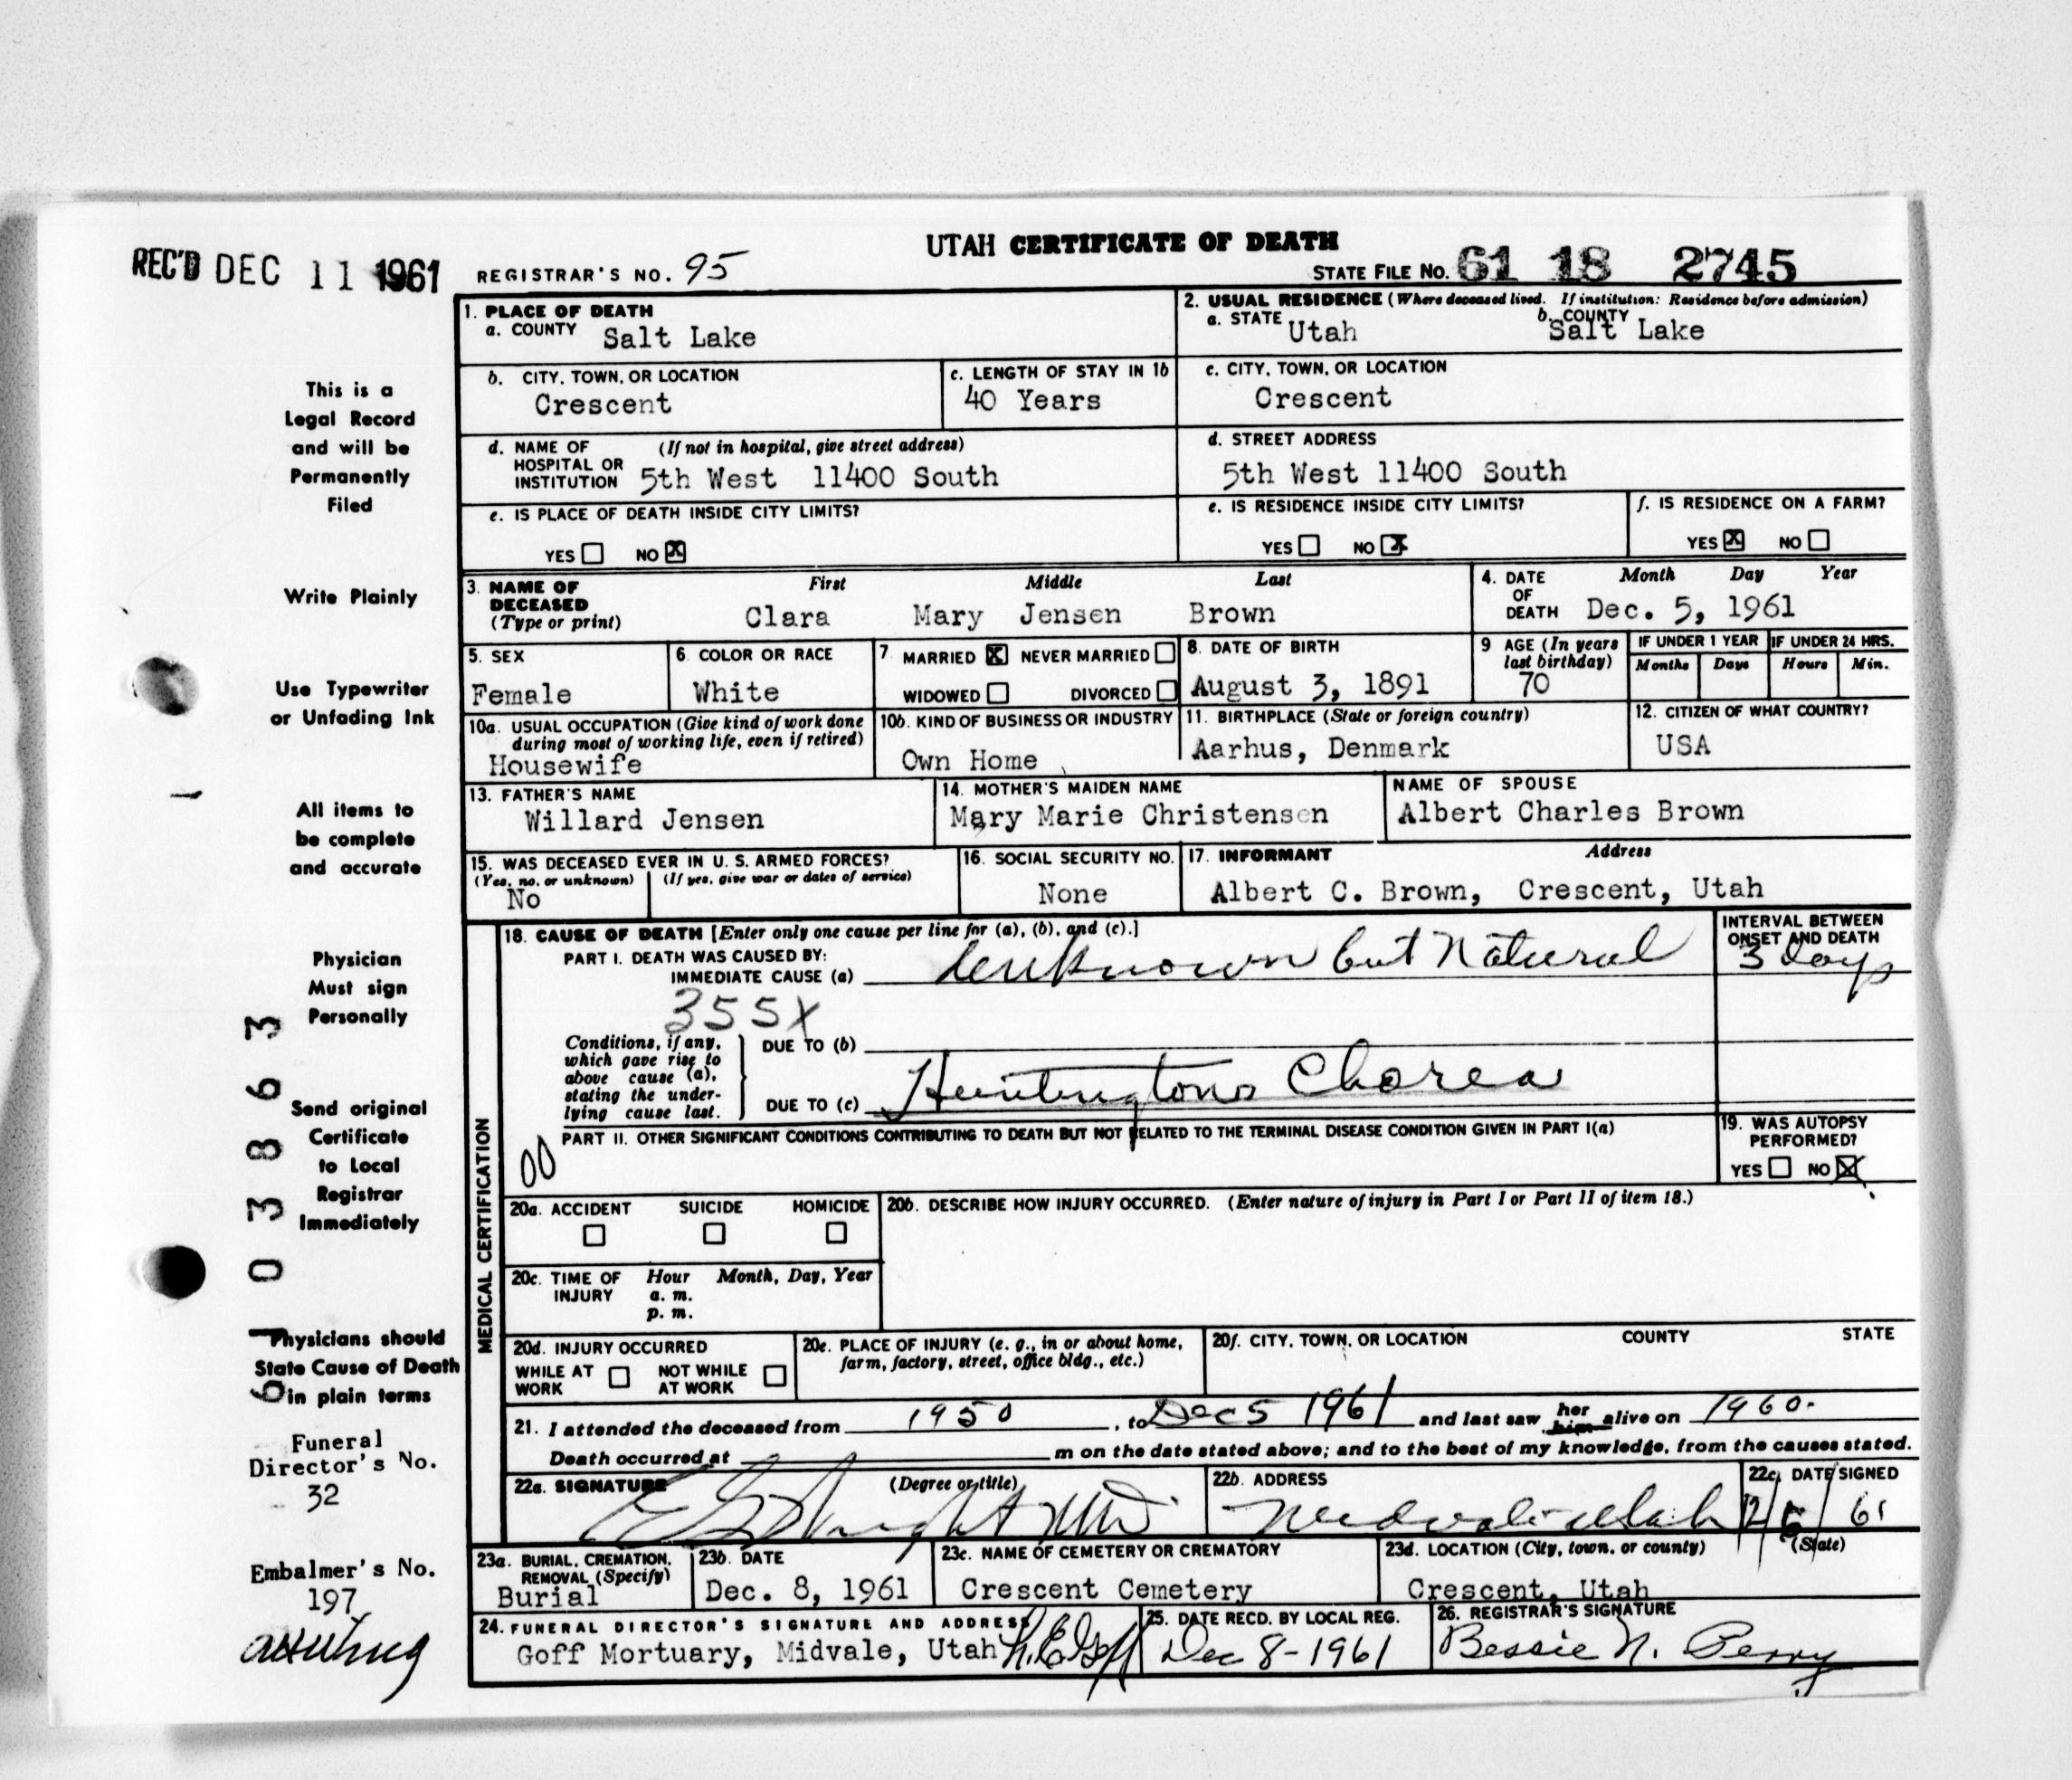 UTAH CERTIFICATE OF DEATH
REC'D DEC 11 1961
REGISTRAR'S NO. 95
STATE FILE NO. 61 18 2745
1. PLACE OF DEATH
a. COUNTY Salt Lake
2. USUAL RESIDENCE (Where deceased lived. If institution: Residence before admission)
a. STATE Utah
b. COUNTY Salt Lake
b. CITY, TOWN, OR LOCATION
Crescent
c. LENGTH OF STAY IN 1b
40 Years
c. CITY, TOWN, OR LOCATION
Crescent
d. NAME OF (If not in hospital, give street address)
HOSPITAL OR
INSTITUTION 5th West 11400 South
d. STREET ADDRESS
5th West 11400 South
e. IS PLACE OF DEATH INSIDE CITY LIMITS?
YES NO X
e. IS RESIDENCE INSIDE CITY LIMITS?
YES NO X
f. IS RESIDENCE ON A FARM?
YES X NO
3. NAME OF DECEASED
(Type or print)
First Middle Last
Clara Mary Jensen Brown
4. DATE OF DEATH
Month Day Year
Dec. 5, 1961
5. SEX
Female
6. COLOR OR RACE
White
7. MARRIED X NEVER MARRIED
WIDOWED DIVORCED
8. DATE OF BIRTH
August 3, 1891
9 AGE (In years last birthday)
70
IF UNDER 1 YEAR
Months Days
IF UNDER 24 HRS.
Hours Min.
10a. USUAL OCCUPATION (Give kind of work done
during most of working life, even if retired)
Housewife
10b. KIND OF BUSINESS OR INDUSTRY
Own Home
11. BIRTHPLACE (State or foreign country)
Aarhus, Denmark
12. CITIZEN OF WHAT COUNTRY?
USA
13. FATHER'S NAME
Willard Jensen
14. MOTHER'S MAIDEN NAME
Mary Marie Christensen
NAME OF SPOUSE
Albert Charles Brown
15. WAS DECEASED EVER IN U. S. ARMED FORCES?
(Yes, no, or unknown) (If yes, give war or dates of service)
No
16. SOCIAL SECURITY NO.
None
17. INFORMANT Address
Albert C. Brown, Crescent, Utah
MEDICAL CERTIFICATION
18. CAUSE OF DEATH [Enter only one cause per line for (a), (b), and (c).]
PART I. DEATH WAS CAUSED BY:
IMMEDIATE CAUSE (a) Unknown but Natural
INTERVAL BETWEEN
ONSET AND DEATH
3 days
355X
Conditions, if any,
which gave rise to
above cause (a),
stating the under-
lying cause last.
DUE TO (b)
DUE TO (c) Huntingtons Chorea
PART II. OTHER SIGNIFICANT CONDITIONS CONTRIBUTING TO DEATH BUT NOT RELATED TO THE TERMINAL DISEASE CONDITION GIVEN IN PART I(a)
00
19. WAS AUTOPSY
PERFORMED?
YES NO X
20a. ACCIDENT SUICIDE HOMICIDE
20b. DESCRIBE HOW INJURY OCCURRED. (Enter nature of injury in Part I or Part II of item 18.)
20c. TIME OF INJURY
Hour Month, Day, Year
a. m.
p. m.
20d. INJURY OCCURRED
WHILE AT WORK NOT WHILE AT WORK
20e. PLACE OF INJURY (e. g., in or about home,
farm, factory, street, office bldg., etc.)
20f. CITY, TOWN, OR LOCATION COUNTY STATE
21. I attended the deceased from 1950, to Dec 5 1961 and last saw her him alive on 1960.
Death occurred at m on the date stated above; and to the best of my knowledge, from the causes stated.
22a. SIGNATURE (Degree or title)
MD
22b. ADDRESS
Midvale Utah
22c. DATE SIGNED
12/5/61
23a. BURIAL, CREMATION,
REMOVAL (Specify)
Burial
23b. DATE
Dec. 8, 1961
23c. NAME OF CEMETERY OR CREMATORY
Crescent Cemetery
23d. LOCATION (City, town, or county) (State)
Crescent, Utah
24. FUNERAL DIRECTOR'S SIGNATURE AND ADDRESS
Goff Mortuary, Midvale, Utah
25. DATE RECD. BY LOCAL REG.
Dec 8-1961
26. REGISTRAR'S SIGNATURE
Bessie N. Perry
This is a
Legal Record
and will be
Permanently
Filed
Write Plainly
Use Typewriter
or Unfading Ink
All items to
be complete
and accurate
Physician
Must sign
Personally
Send original
Certificate
to Local
Registrar
Immediately
Physicians should
State Cause of Death
in plain terms
61 03863
Funeral
Director's No.
32
Embalmer's No.
197